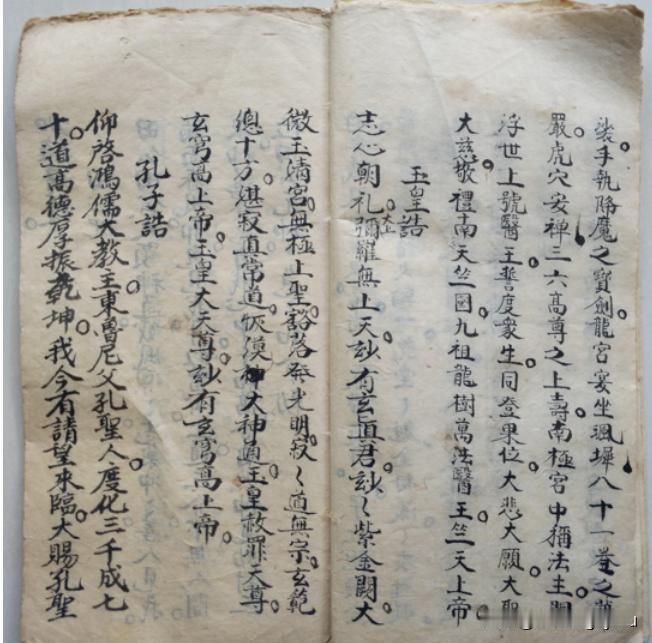 裟手執降魔之寶劍龍宮宴坐珮墀八十一卷之
嚴虎穴安禪三六高尊之上壽南極宮中稱法主
浮世上號醫王誓度衆生同登果位大悲大願大聖
大慈敬禮南天竺國九祖龍樹萬法醫王竺天上帝
玉皇誥
志心朝礼彌羅無上天玅有玄真君玅〻紫金闕太
微玉清宮無極上聖豁落發光明寂〻道無宗玄範
總十方湛寂真常道恢漠神大神通玉皇赦罪天尊
玄穹高上帝玉皇大天尊玅有玄穹高上帝
孔子誥
仰啓鴻儒大教主東魯尼父孔聖人度化三千成七
十道高德厚振乾坤我今有請望來臨大賜孔聖